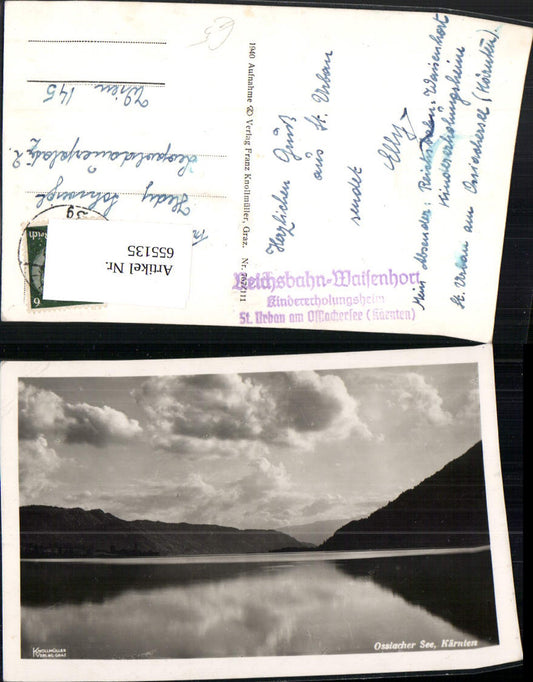 Herzlichen Gruß
aus St. Urban
sendet
Elly
Mein Absender: Reichsbahn-Waisenhort
Kindererholungsheim
St. Urban am Ossiachersee (Kärnten).
Reichsbahn-Waisenhort
Kindererholungsheim
St. Urban am Ossiachersee (Kärnten)
1940 Aufnahme & Verlag Franz Knollmüller, Graz.
Hedy
Leopoldauerplatz 2
Wien 145
Reich
6
Artikel Nr.
655135
KNOLLMÜLLER
VERLAG GRAZ
Ossiacher See, Kärnten